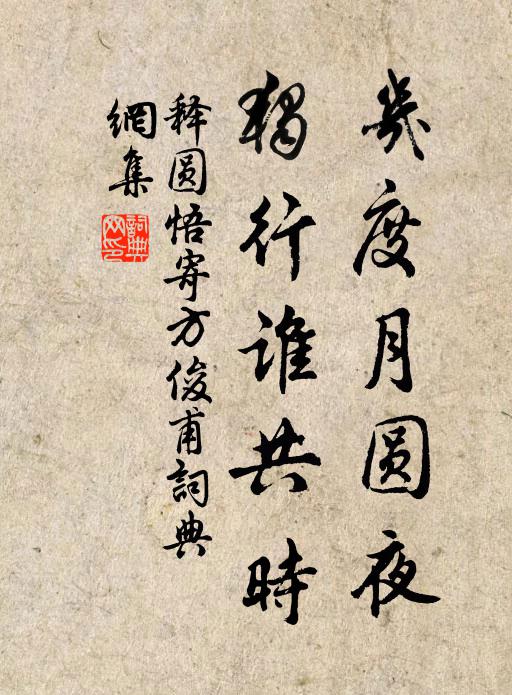 幾度月圆夜
獨行誰共時
释圆悟寄方俊甫詞典
網集
詞典
网印